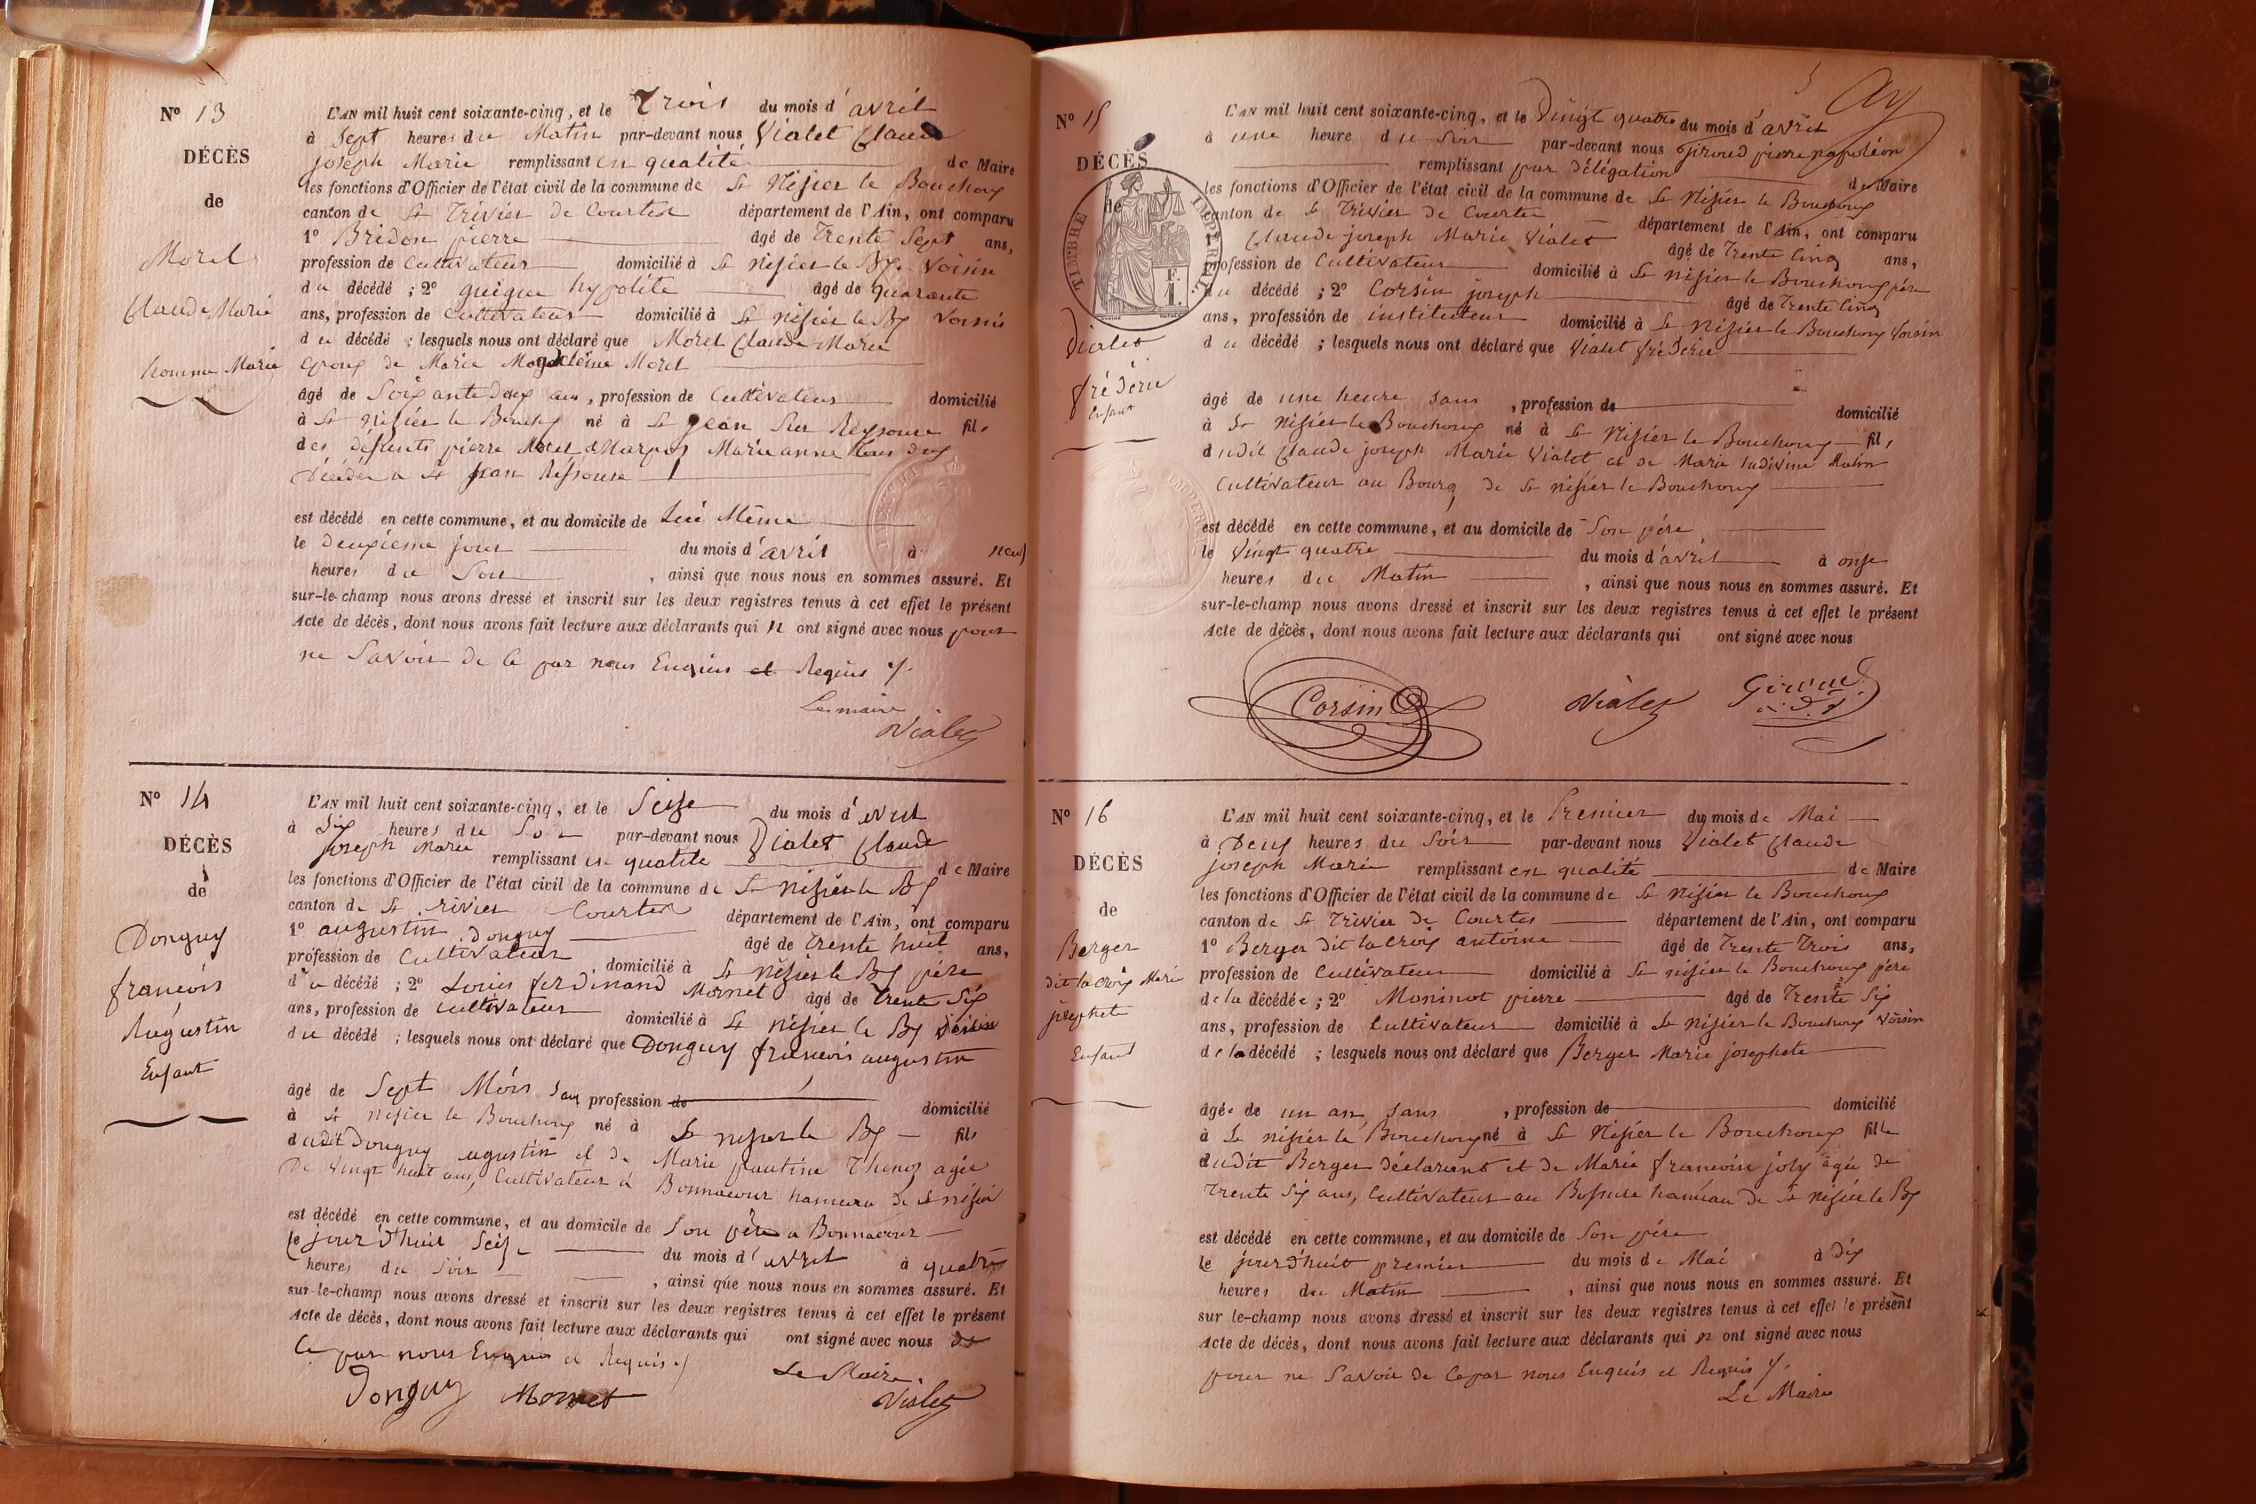 Nº 13
DÉCÈS
de
Morel
Claude Marie
homme Marié
L'AN mil huit cent soixante-cinq, et le Trois du mois d'avril
à Sept heures du Matin par-devant nous Vialet Claude
joseph Marie remplissant en qualité de Maire
les fonctions d'Officier de l'état civil de la commune de St Nisier le Bouchoux
canton de St Trivier de Courtes département de l'Ain, ont comparu
1º Bridon pierre âgé de Trente Sept ans,
profession de Cultivateur domicilié à St nisier le Bx Voisin
du décédé ; 2º guigue hypolite âgé de quarante
ans, profession de Cultivateur domicilié à St nisier le Bx voisin
du décédé ; lesquels nous ont déclaré que Morel Claude Marie
Epoux de Marie Magdeleine Morel
âgé de Soixante deux ans, profession de Cultivateur domicilié
à St Nisier le Bouchx né à St jean Sur Reyssouse fils
des défunts pierre Morel & Marie anne tous deux
décédés a St jean Reyssouse
est décédé en cette commune, et au domicile de Lui Même
le deuxième jour du mois d'avril à neuf
heures du Soir , ainsi que nous nous en sommes assuré. Et
sur-le-champ nous avons dressé et inscrit sur les deux registres tenus à cet effet le présent
Acte de décès, dont nous avons fait lecture aux déclarants qui n ont signé avec nous pour
ne Savoir de ce par nous Enquis et Requis
Le maire
Vialet
Nº 14
DÉCÈS
de
Donguy
francois
Augustin
Enfant
L'AN mil huit cent soixante-cinq, et le Seize du mois d'avril
à Six heures du Soir par-devant nous Vialet Claude
joseph Marie remplissant en qualité de Maire
les fonctions d'Officier de l'état civil de la commune de St nisier le Bx
canton de St Trivier Courtes département de l'Ain, ont comparu
1º augustin donguy âgé de trente huit ans,
profession de Cultivateur domicilié à St nisier le Bx père
du décédé ; 2º Louis ferdinand Mornet âgé de trente Six
ans, profession de cultivateur domicilié à St nisier le Bx
du décédé ; lesquels nous ont déclaré que Donguy francois augustin
âgé de Sept Mois San profession de domicilié
à St nisier le Bouchoux né à St nisier le Bx fils
dudit Donguy augustin et de Marie pauline Thenoz agée
De Vingt huit ans, Cultivateur à Bonnacour hameau de St nisier
est décédé en cette commune, et au domicile de Son père a Bonnacour
le jour d'huit Seize du mois d'avril à quatre
heures du Soir , ainsi que nous nous en sommes assuré. Et
sur-le-champ nous avons dressé et inscrit sur les deux registres tenus à cet effet le présent
Acte de décès, dont nous avons fait lecture aux déclarants qui ont signé avec nous de
Ce par nous Enquis et Requis
Donguy Mornet
Le Maire
Vialet
Nº 15
DÉCÈS
de
TIMBRE IMPÉRIAL
Vialet
fréderic
Enfant
L'AN mil huit cent soixante-cinq, et le Vingt quatre du mois d'avril
à une heure du Soir par-devant nous Giroud pierre napoléon
remplissant par délégation de Maire
les fonctions d'Officier de l'état civil de la commune de St Nisier le Bouchoux
canton de St Trivier de Courtes département de l'Ain, ont comparu
1º Claude joseph Marie Vialet âgé de Trente Cinq ans,
profession de Cultivateur domicilié à St nisier le Bouchoux père
du décédé ; 2º Corsin joseph âgé de Trente Cinq
ans, profession de instituteur domicilié à St Nisier le Bouchoux Voisin
du décédé ; lesquels nous ont déclaré que Vialet fréderic
âgé de une heure sans , profession de domicilié
à St Nisier le Bouchoux né à St Nisier le Bouchoux fils
dudit Claude joseph Marie Vialet et de Marie
Cultivateur au Bourg de St nisier le Bouchoux
est décédé en cette commune, et au domicile de Son père
le Vingt quatre du mois d'avril à onze
heures du Matin , ainsi que nous nous en sommes assuré. Et
sur-le-champ nous avons dressé et inscrit sur les deux registres tenus à cet effet le présent
Acte de décès, dont nous avons fait lecture aux déclarants qui ont signé avec nous
Corsin Vialet Giroud
Nº 16
DÉCÈS
de
Berger
dit la croix Marie
josephet
Enfant
L'AN mil huit cent soixante-cinq, et le Premier du mois de Mai
à Deux heures du Soir par-devant nous Vialet Claude
joseph Marie remplissant en qualité de Maire
les fonctions d'Officier de l'état civil de la commune de St Nisier le Bouchoux
canton de St Trivier de Courtes département de l'Ain, ont comparu
1º Berger dit la croix antoine âgé de Trente Trois ans,
profession de Cultivateur domicilié à St nisier le Bouchoux père
de la décédée ; 2º Moninot pierre âgé de Trente Six
ans, profession de Cultivateur domicilié à St Nisier le Bouchoux Voisin
de la décédé ; lesquels nous ont déclaré que Berger Marie josephete
âgée de un an, sans , profession de domicilié
à St nisier le Bouchoux né à St Nisier le Bouchoux fille
dudit Berger déclarant et de Marie francoise joly agée de
Trente Six ans, Cultivateur au hameau de St nisier le Bx
est décédé en cette commune, et au domicile de Son père
le jour d'huit premier du mois de Mai à Dix
heures du Matin , ainsi que nous nous en sommes assuré. Et
sur le-champ nous avons dressé et inscrit sur les deux registres tenus à cet effet le présent
Acte de décès, dont nous avons fait lecture aux déclarants qui n ont signé avec nous
pour ne Savoir de Ce par nous Enquis et Requis
Le Maire